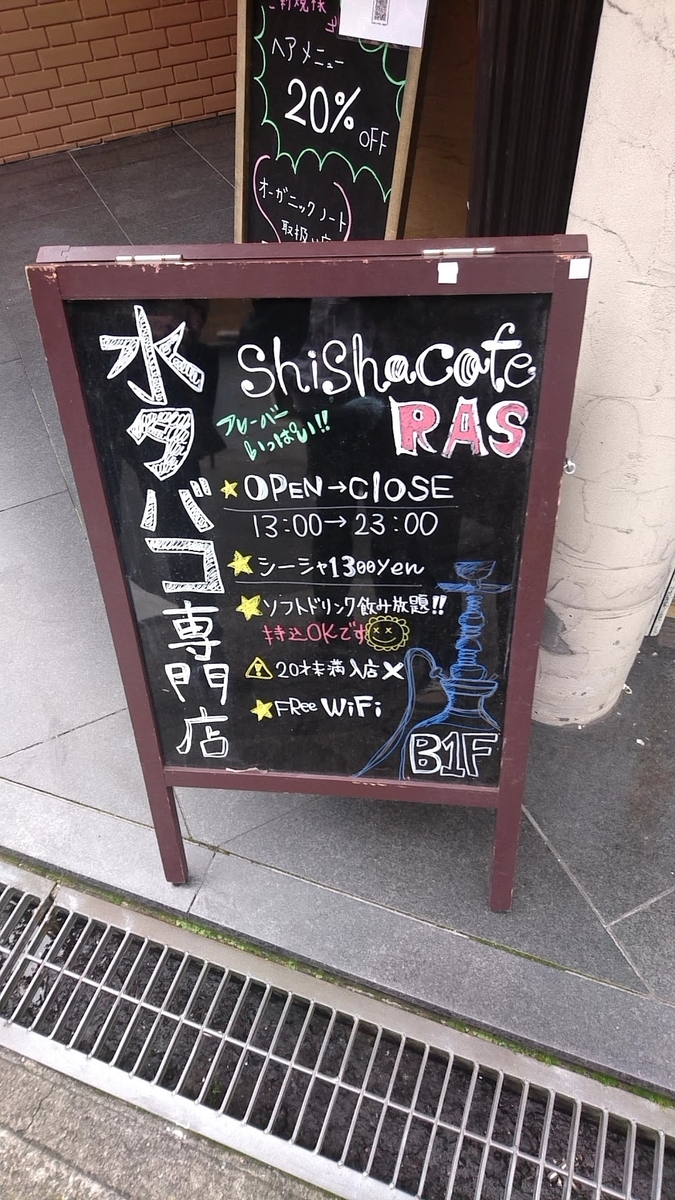 ご新規様
ヘアメニュー
20%
OFF
オーガニックノート
取扱い店
水タバコ専門店
ShiShacafe
RAS
フレーバー
いっぱい!!
OPEN→CLOSE
13:00→23:00
シーシャ1300yen
ソフトドリンク飲み放題!!
持込OKです
20才未満入店×
FRee WiFi
B1F